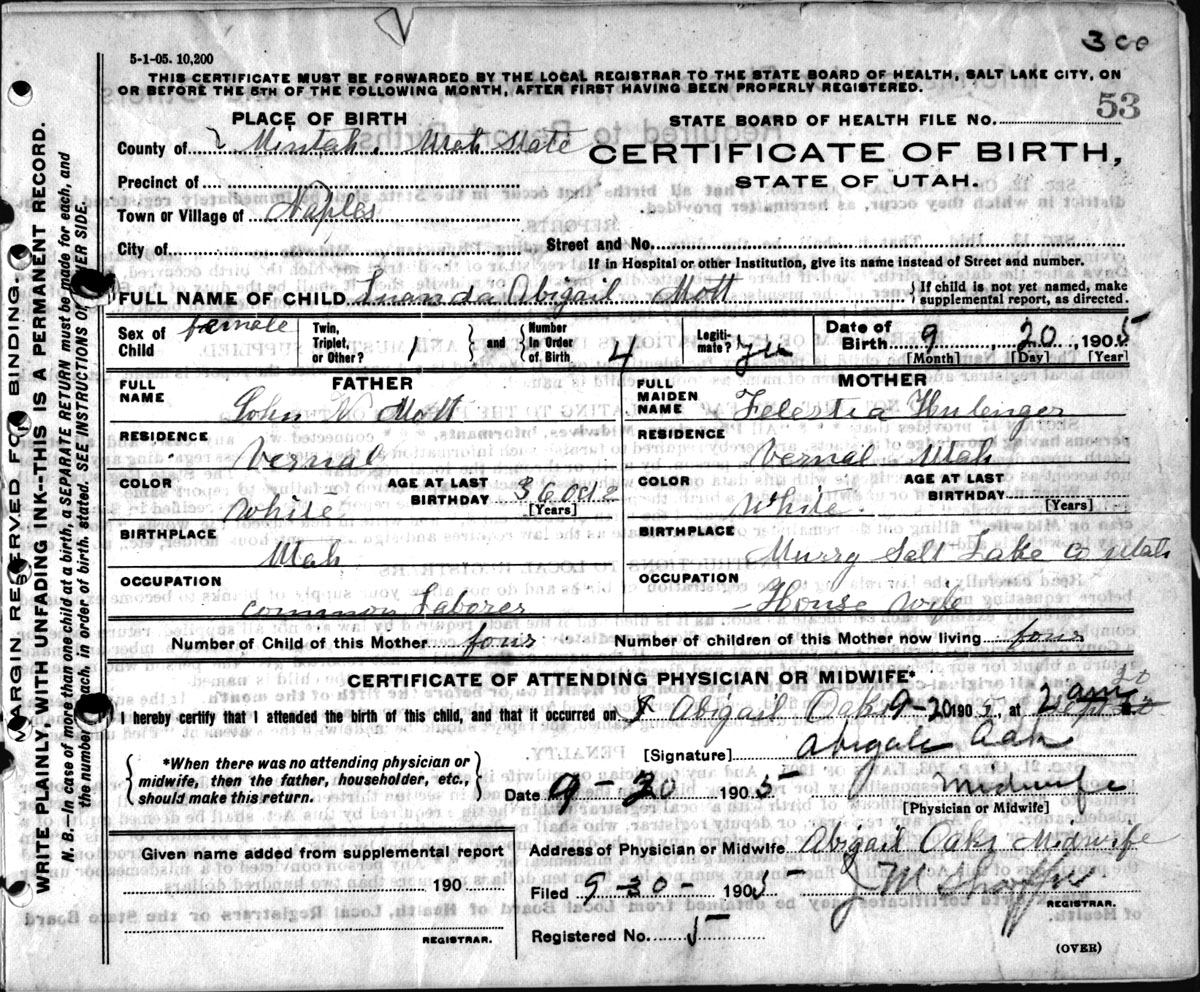 3 00
5-1-05. 10,200
THIS CERTIFICATE MUST BE FORWARDED BY THE LOCAL REGISTRAR TO THE STATE BOARD OF HEALTH, SALT LAKE CITY, ON
OR BEFORE THE 5TH OF THE FOLLOWING MONTH, AFTER FIRST HAVING BEEN PROPERLY REGISTERED.
PLACE OF BIRTH
STATE BOARD OF HEALTH FILE NO. 53
County of Uintah, Utah State
CERTIFICATE OF BIRTH,
STATE OF UTAH.
Precinct of
Town or Village of Naples
City of
Street and No.
If in Hospital or other Institution, give its name instead of Street and number.
FULL NAME OF CHILD Luanda Abigail Mott
If child is not yet named, make
supplemental report, as directed.
Sex of Child female
Twin, Triplet, or Other? 1 and Number In Order of Birth 4
Legitimate? yes
Date of Birth 9, 20, 1905
[Month] [Day] [Year]
FATHER
FULL NAME
John N Mott
RESIDENCE
Vernal
COLOR
White
AGE AT LAST BIRTHDAY 36 Oct 2
[Years]
BIRTHPLACE
Utah
OCCUPATION
common Laborer
MOTHER
FULL MAIDEN NAME
Felestia
RESIDENCE
Vernal Utah
COLOR
White.
AGE AT LAST BIRTHDAY
[Years]
BIRTHPLACE
Murry Salt Lake Co Utah
OCCUPATION
House wife
Number of Child of this Mother four
Number of children of this Mother now living four
CERTIFICATE OF ATTENDING PHYSICIAN OR MIDWIFE*
I hereby certify that I attended the birth of this child, and that it occurred on I Abigail Oaks 9-20 1905, at 2 am
*When there was no attending physician or
midwife, then the father, householder, etc.,
should make this return.
[Signature] Abigale Oak
Date 9 30 1905 Midwife
[Physician or Midwife]
Given name added from supplemental report
190
REGISTRAR.
Address of Physician or Midwife Abigail Oaks Midwife
Filed 9-30- 1905
REGISTRAR.
Registered No. 5
(OVER)
MARGIN RESERVED FOR BINDING.
WRITE PLAINLY WITH UNFADING INK--THIS IS A PERMANENT RECORD.
N. B.—In case of more than one child at a birth, a SEPARATE RETURN must be made for each, and
the number of each, in order of birth, stated. SEE INSTRUCTIONS OTHER SIDE.